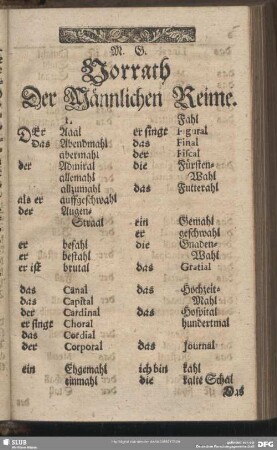 M. G.
Vorrath
Der Männlichen Reime.
I.
DEr Aaal
Das Abendmahl
abermahl
der Admiral
allemahl
allzumahl
als er auffgeschwahl
der Augen-
Straal
er befahl
er bestahl
er ist brutal
das Canal
das Capital
der Cardinal
er singt Choral
das Cordial
der Corporal
ein Ehgemahl
einmahl
Fahl
er singt Figural
das Final
der Fiscal
die Fürsten-
Wahl
das Futterahl
ein Gemahl
er geschwahl
die Gnaden-
Wahl
das Gratial
das Hochzeit-
Mahl
das Hospital
hundertmal
das Journal
ich bin kahl
die kalte Schal
Das
SLUB
Wir führen Wissen.
gefördert von der
DFG